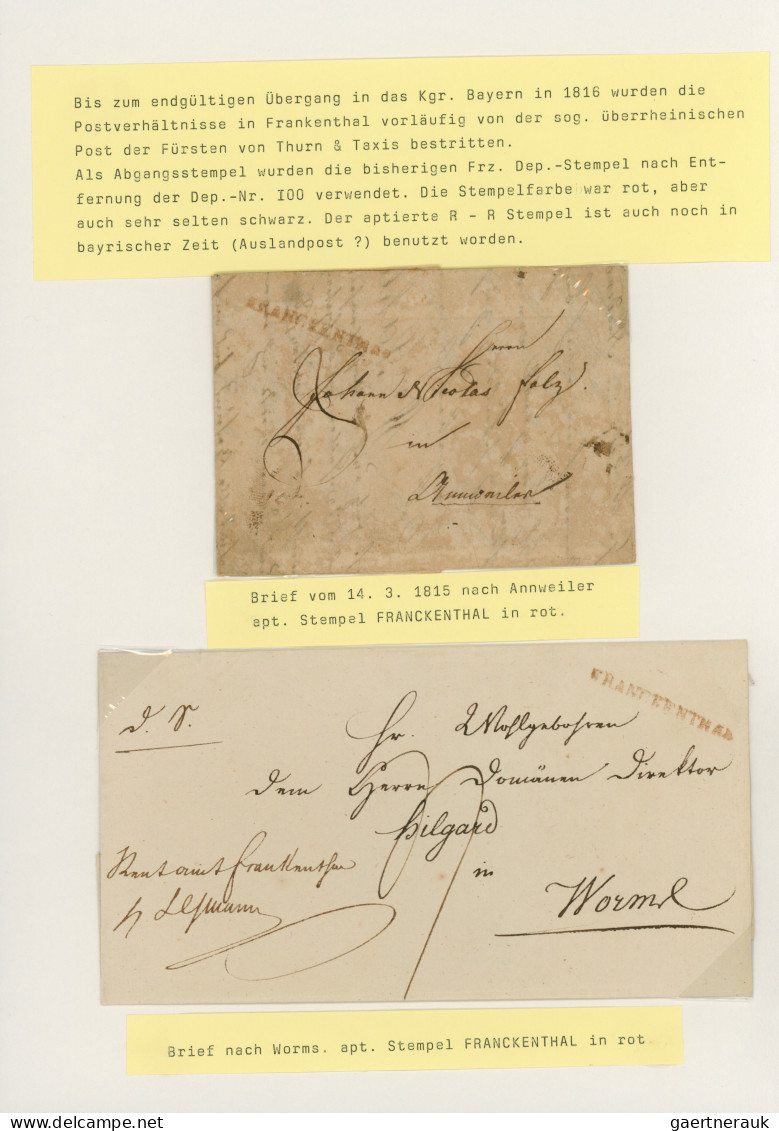 Bis zum endgültigen Übergang in das Kgr. Bayern in 1816 wurden die
Postverhältnisse in Frankenthal vorläufig von der sog. überrheinischen
Post der Fürsten von Thurn & Taxis bestritten.
Als Abgangsstempel wurden die bisherigen Frz. Dep.-Stempel nach Ent-
fernung der Dep.-Nr. IOO verwendet. Die Stempelfarbe war rot, aber
auch sehr selten schwarz. Der aptierte R - R Stempel ist auch noch in
bayrischer Zeit (Auslandpost ?) benutzt worden.
FRANCKENTHAL
Herrn
Johann Nicolas Folz
in
Annweiler
Brief vom 14. 3. 1815 nach Annweiler
apt. Stempel FRANCKENTHAL in rot.
FRANCKENTHAL
D. S.
Hr. Wohlgebohren
dem Herrn Domänen Direktor
Hilgard
Rentamt Frankenthal
in
Worms
Brief nach Worms. apt. Stempel FRANCKENTHAL in rot
www.delcampe.net
gaertnerauk